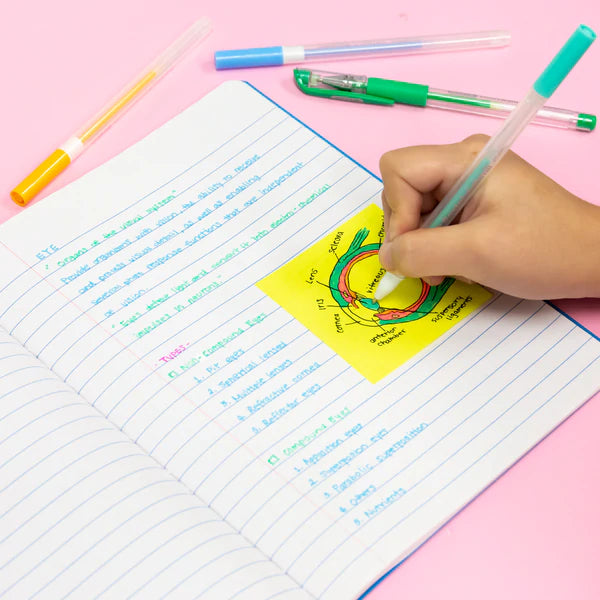 EYE
" Organs of the visual system "
Provide organisms with vision, the ability to receive
and process visual detail, as well as enabling
several photo response functions that are independent
of vision.
" Eyes detect light and convert it into electro-chemical
impulses in neurons. "
- TYPES -
Non-Compound Eyes
1. Pit eyes
2. Spherical lensed
3. Multiple lenses
4. Refractive cornea
5. Reflector eyes
Compound Eyes
1. Apposition eyes
2. Superposition eyes
3. Parabolic superposition
4. Others
5. Nutrients
Sclera
Lens
Iris
Cornea
Vitreous
anterior
chamber
suspensory
ligaments